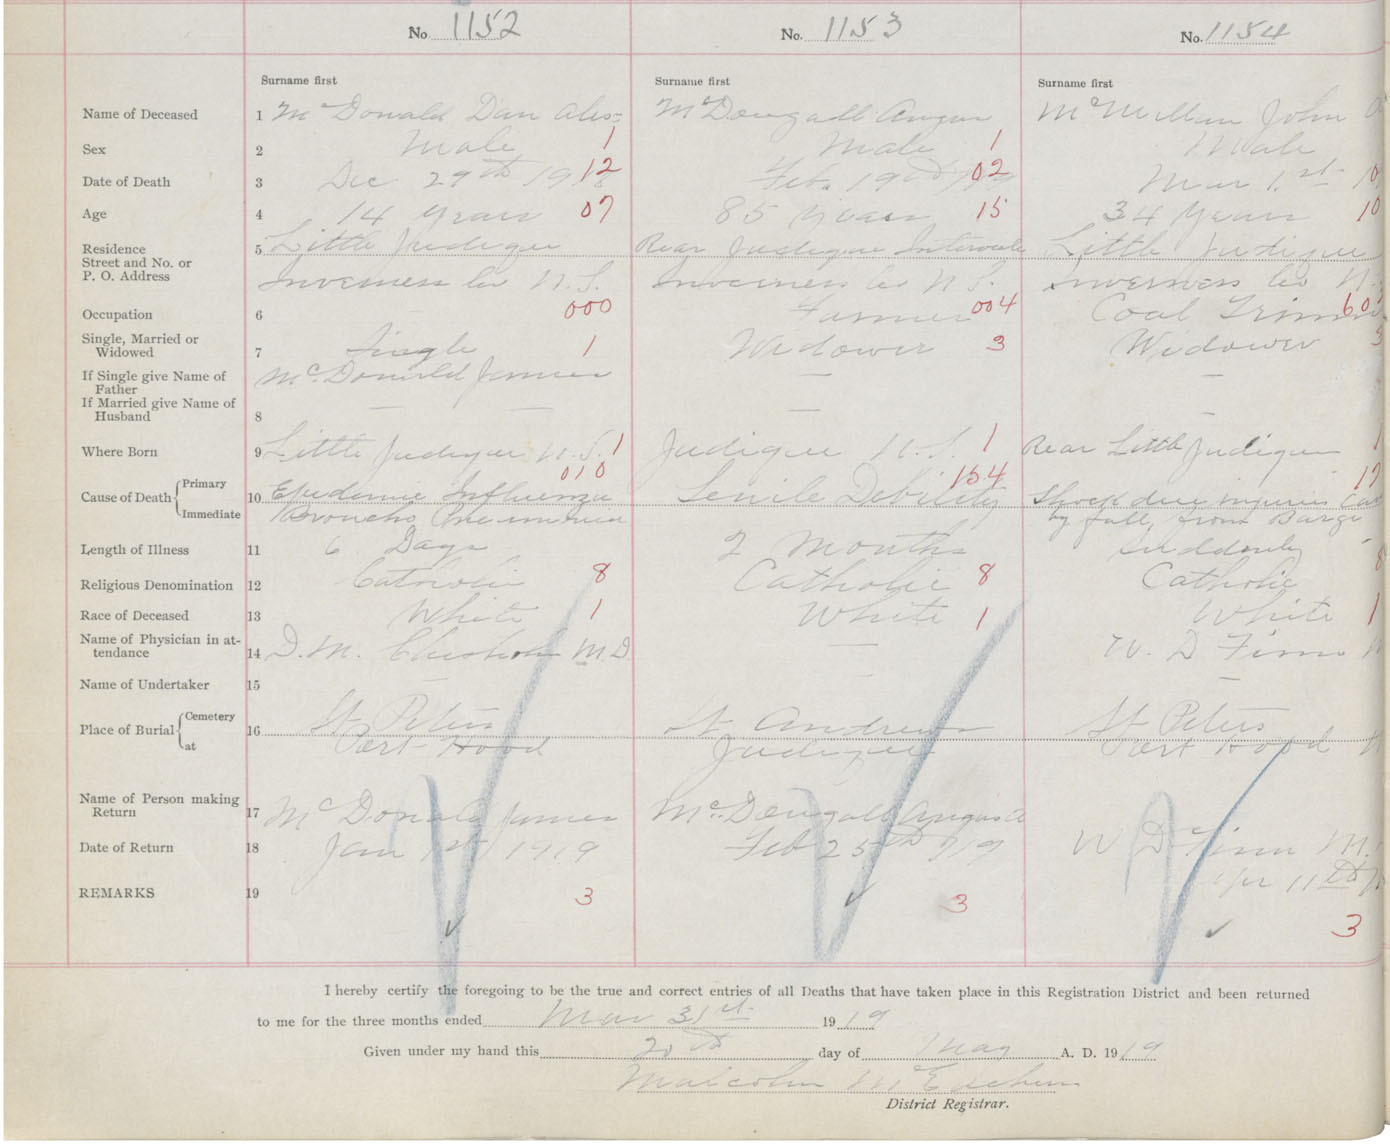 No. 1152 No. 1153 No. 1154
Surname first Surname first Surname first
Name of Deceased 1 McDonald Dan Alex McDougall Angus McMillan John
Sex 2 Male 1 Male 1 Male
Date of Death 3 Dec 29th 1918 12 Feb. 19th 1919 02 Mar 1st
Age 4 14 Years 07 85 Years 15 34 Years 10
Residence 5 Little Judique Rear Judique Intervale Little Judique
Street and No. or
P. O. Address Inverness Co N.S. Inverness Co N S. Inverness Co N.
Occupation 6 000 Farmer 004 Coal Trimmer 60
Single, Married or
Widowed 7 Single 1 Widower 3 Widower 3
If Single give Name of McDonald James — —
Father
If Married give Name of
Husband 8 — — — —
Where Born 9 Little Judique N.S. 1 Judique N.S. 1 Rear Little Judique 1
010 154 17
Cause of Death Primary 10 Epidemic Influenza Senile Debility Shock due injuries
Immediate Broncho Pneumonia by fall from Barge
Length of Illness 11 6 Days 2 Months suddenly
Religious Denomination 12 Catholic 8 Catholic 8 Catholic 8
Race of Deceased 13 White 1 White 1 White 1
Name of Physician in at-
tendance 14 J. M. Chisholm M.D. — W. D Finn
Name of Undertaker 15 — — —
Place of Burial Cemetery 16 St Peters St Andrews St Peters
at Port Hood Judique Port Hood N
Name of Person making
Return 17 McDonald James McDougall Angus A
Date of Return 18 Jan 1st 1919 Feb 25th 1919 W D Finn M.
Apr 11th
REMARKS 19 3 3 3
I hereby certify the foregoing to be the true and correct entries of all Deaths that have taken place in this Registration District and been returned
to me for the three months ended Mar 31st 1919
Given under my hand this 20th day of May A. D. 1919
Malcolm McEachern
District Registrar.